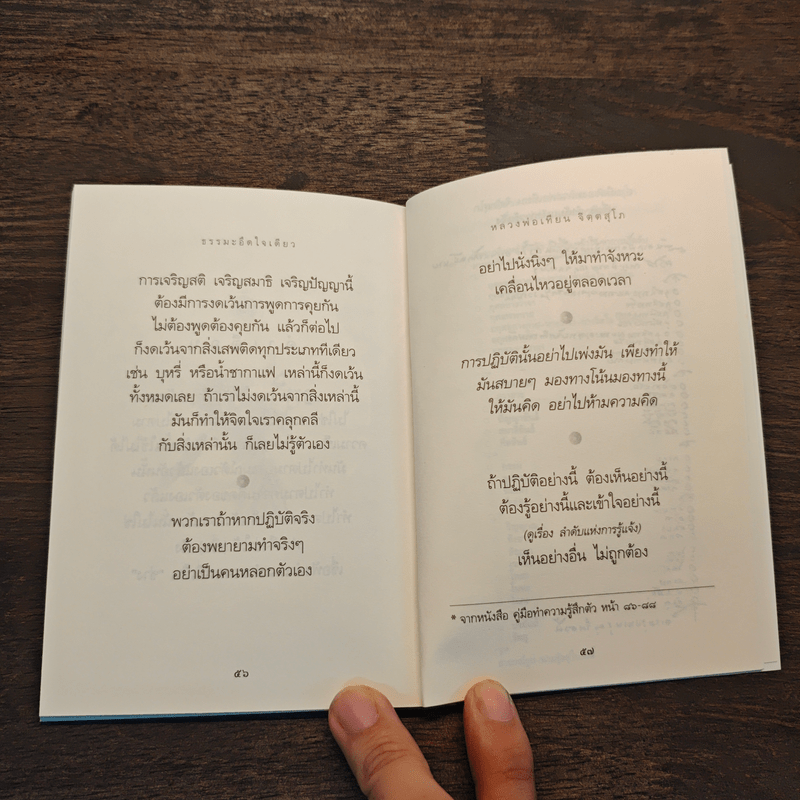 ธรรมะอึดใจเดียว
การเจริญสติ เจริญสมาธิ เจริญปัญญานี้
ต้องมีการงดเว้นการพูดการคุยกัน
ไม่ต้องพูดต้องคุยกัน แล้วก็ต่อไป
ก็งดเว้นจากสิ่งเสพติดทุกประเภททีเดียว
เช่น บุหรี่ หรือน้ำชากาแฟ เหล่านี้ก็งดเว้น
ทั้งหมดเลย ถ้าเราไม่งดเว้นจากสิ่งเหล่านี้
มันก็ทำให้จิตใจเราคลุกคลี
กับสิ่งเหล่านั้น ก็เลยไม่รู้ตัวเอง
พวกเราถ้าหากปฏิบัติจริง
ต้องพยายามทำจริงๆ
อย่าเป็นคนหลอกตัวเอง
๕๖
หลวงพ่อเทียน จิตฺตสุโภ
อย่าไปนั่งนิ่งๆ ให้มาทำจังหวะ
เคลื่อนไหวอยู่ตลอดเวลา
การปฏิบัตินั้นอย่าไปเพ่งมัน เพียงทำให้
มันสบายๆ มองทางโน้นมองทางนี้
ให้มันคิด อย่าไปห้ามความคิด
ถ้าปฏิบัติอย่างนี้ ต้องเห็นอย่างนี้
ต้องรู้อย่างนี้และเข้าใจอย่างนี้
(ดูเรื่อง ลำดับแห่งการรู้แจ้ง)
เห็นอย่างอื่น ไม่ถูกต้อง
* จากหนังสือ คู่มือทำความรู้สึกตัว หน้า ๘๖-๘๘
๕๗